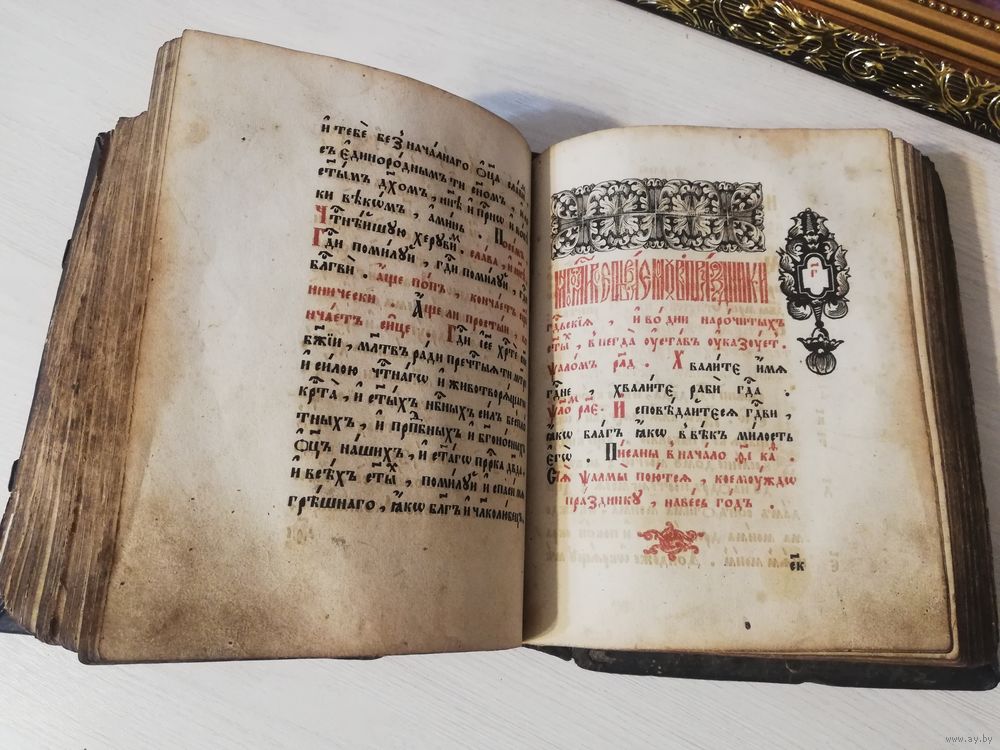 и҆ тебѐ без̾ нача́лнаго ѻ҆ц҃а̀
съ є҆диноро́днымъ ти сн҃омъ, и҆
ст҃ы́мъ дх҃омъ, нн҃ѣ и҆ при́снѡ и҆
ки вѣкѡ́мъ, а҆ми́нь.
чⷭ҇тнѣ́йшую херуви́м. сла́ва, и҆
гдⷭ҇и поми́луй, гдⷭ҇и поми́луй, гдⷭ҇и
блгⷭ҇ви. а҆́ще по́пъ, конча́етъ
иничѐски. А҆́ще ли просты́й,
нча́етъ си́це. Гдⷭ҇и і҆сⷭ҇е хрⷭ҇те сн҃е
бж҃ій, мл҃твъ ра́ди пречⷭ҇тыѧ ти
и҆ си́лою чⷭ҇тна́гѡ и҆ животворѧ́щагѡ
крⷭ҇та̀, и҆ ст҃ы́хъ нбⷭ҇ныхъ си́лъ безпло́
тныхъ, и҆ прпⷣбныхъ и҆ бг҃оно́сныхъ
ѻ҆ц҃ъ на́шихъ, и҆ ст҃а́гѡ прⷪ҇рка дв҃да,
и҆ всѣ́хъ ст҃ы́х, поми́луй и҆ спасѝ мѧ̀
грѣ́шнаго, ꙗ҆́кѡ бл҃гъ и҆ чл҃колю́бецъ.
пра́здники
гдⷭ҇ьскіѧ, и҆ во днѝ наро́читыхъ
ст҃ы́х, в̾негда̀ ᲂу҆ста́въ ᲂу҆ка́зует.
ѱало́мъ. Хвали́те и҆́мѧ
гдⷭ҇не, хвали́те рабѝ гдⷭ҇а.
И҆сповѣ́дайтесѧ гдⷭ҇ви,
ꙗ҆́кѡ бл҃гъ ꙗ҆́кѡ в̾ вѣ́къ ми́лость
є҆гѡ̀. Пи́саны в̾ нача́ло
Сіѧ̀ ѱалмы̀ пою́тсѧ, коемꙋ́ждѡ
пра́зднику, на ве́сь го́дъ.
www.ay.by